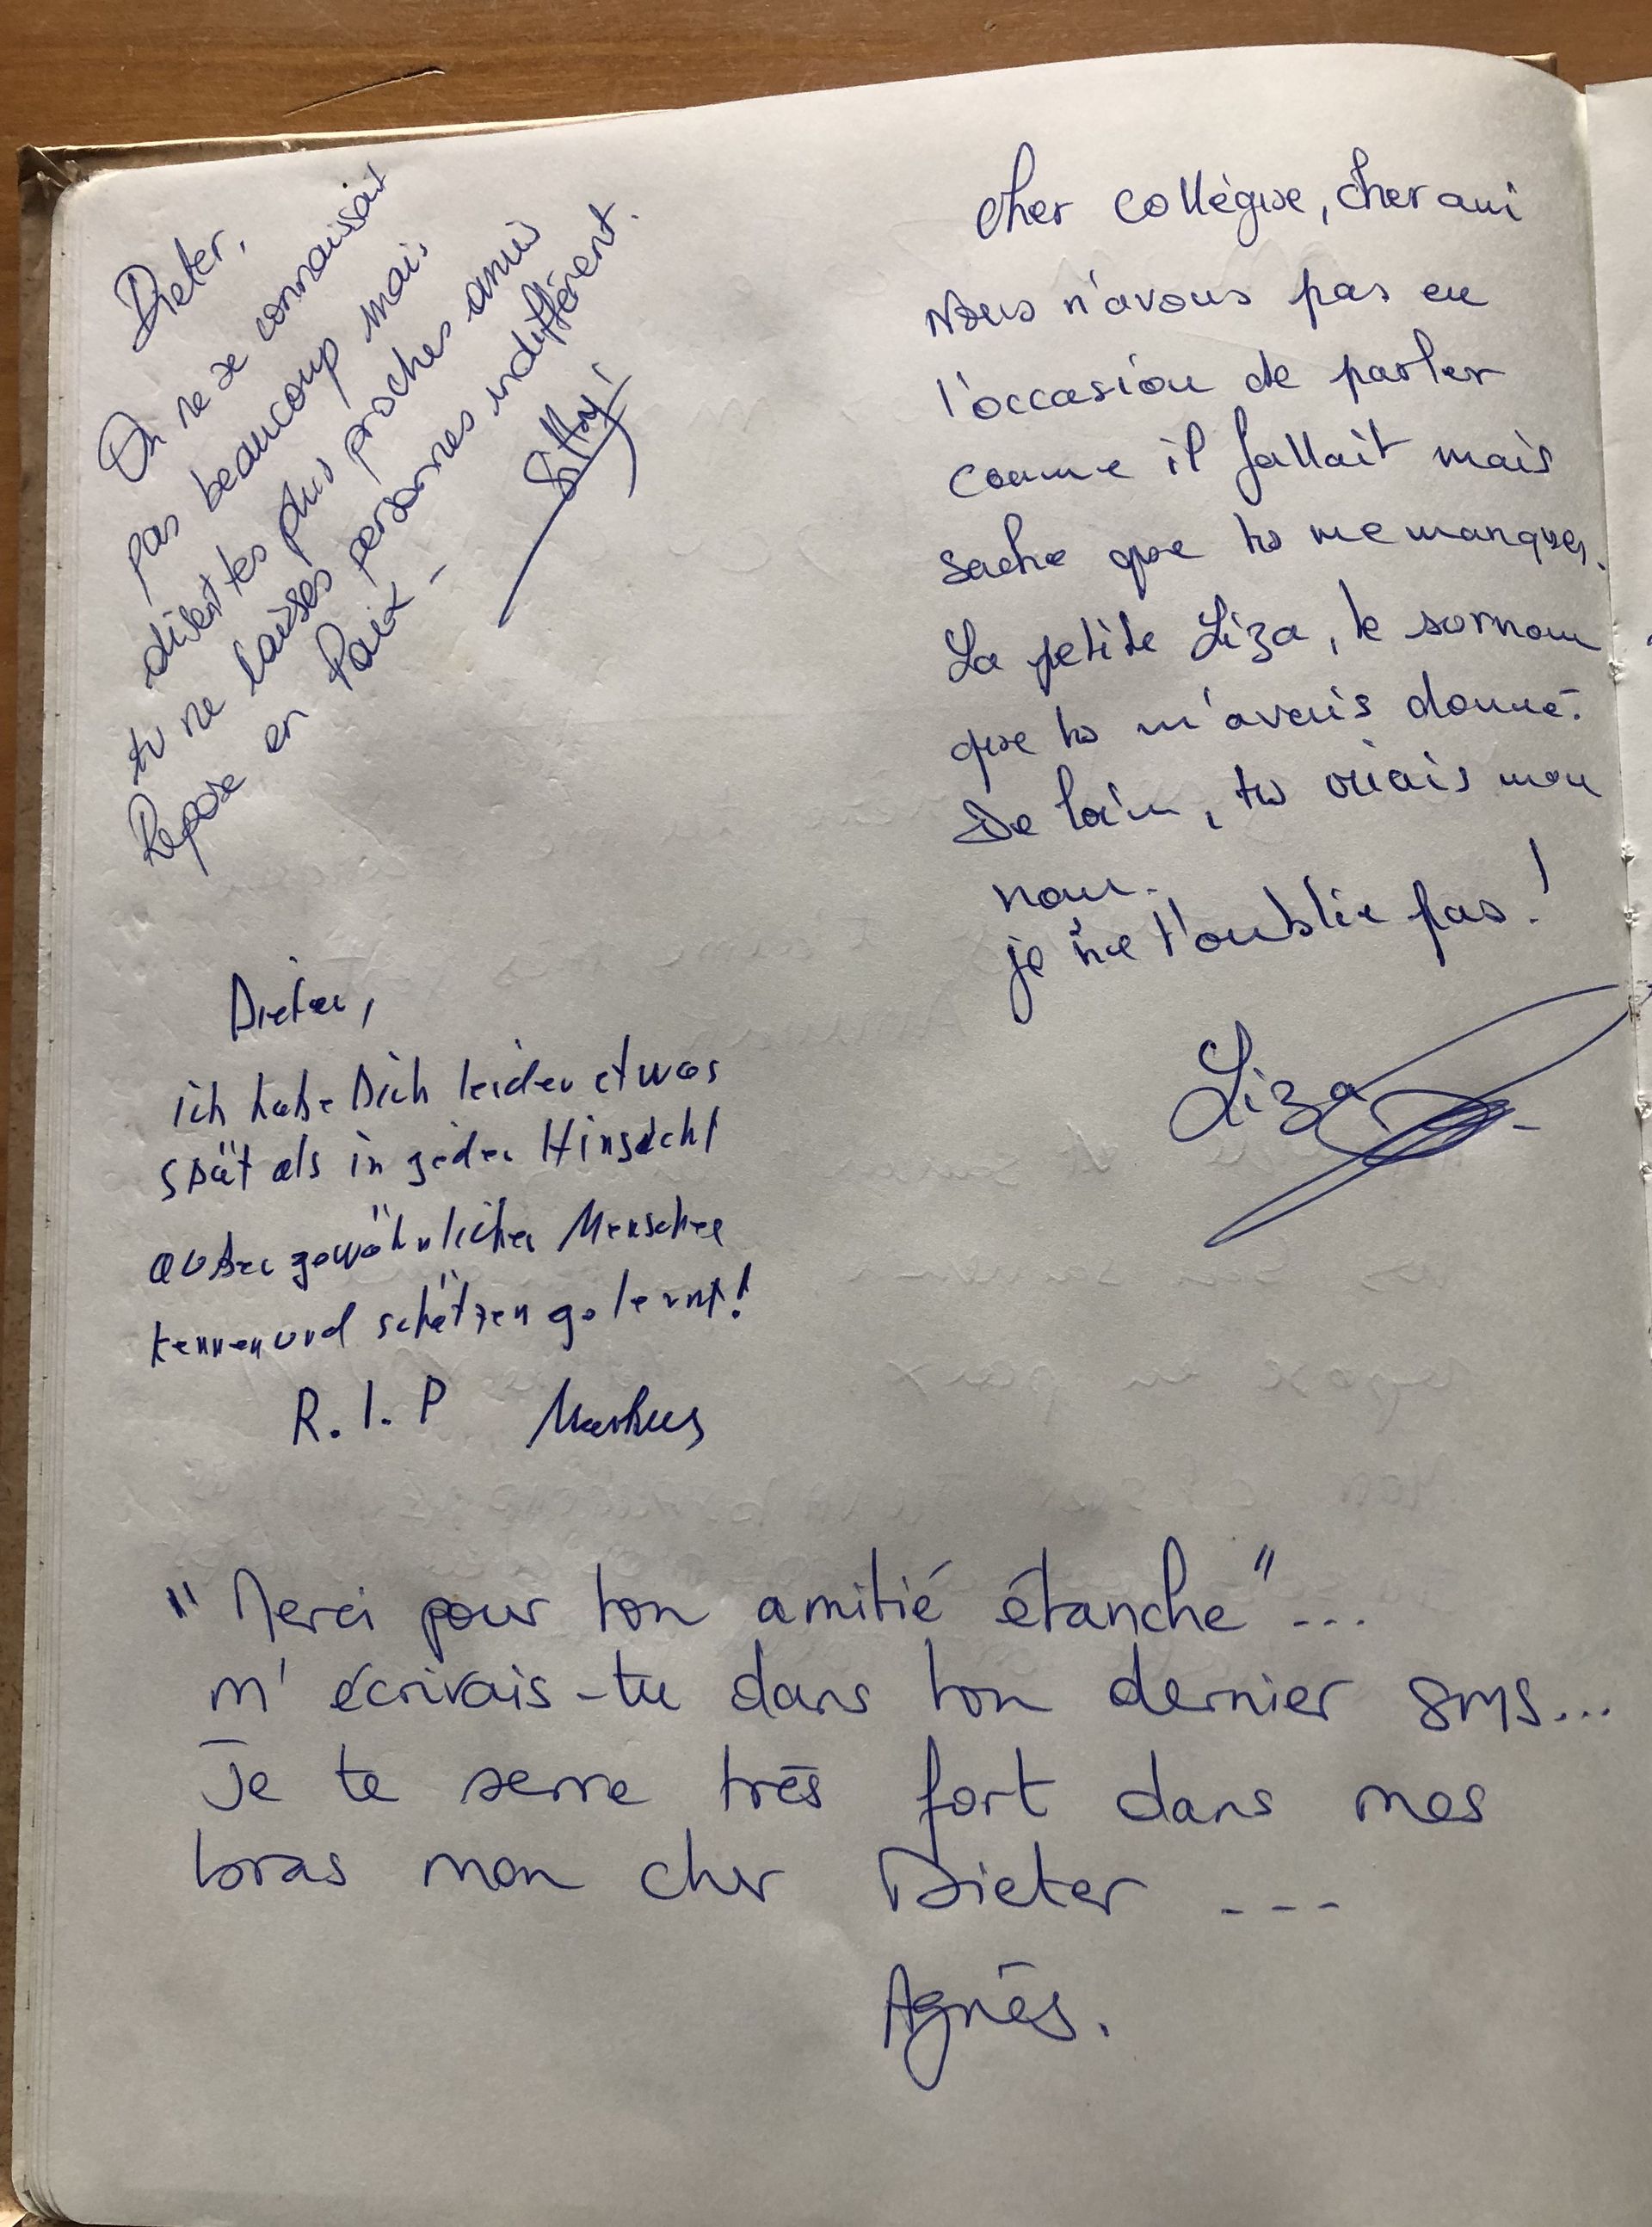 Dieter,
On ne se connaissait
pas beaucoup mais
disent tes plus proches amis
tu ne laisses personnes indifférent.
Repose en Paix -
Cher collègue, cher ami
Nous n'avons pas eu
l'occasion de parler
comme il fallait mais
sache que tu me manques.
La petite Liza, le surnom
que tu m'avais donné.
De loin, tu criais mon
nom.
je ne t'oublie pas !
Liza
Dieter,
ich habe Dich leider etwas
spät als in jeder Hinsicht
außergewöhnlichen Menschen
kennen und schätzen gelernt!
R. I. P Markus
"Merci pour ton amitié étanche"...
m'écrivais-tu dans ton dernier SMS...
Je te serre très fort dans mes
bras mon cher Dieter ---
Agnès.